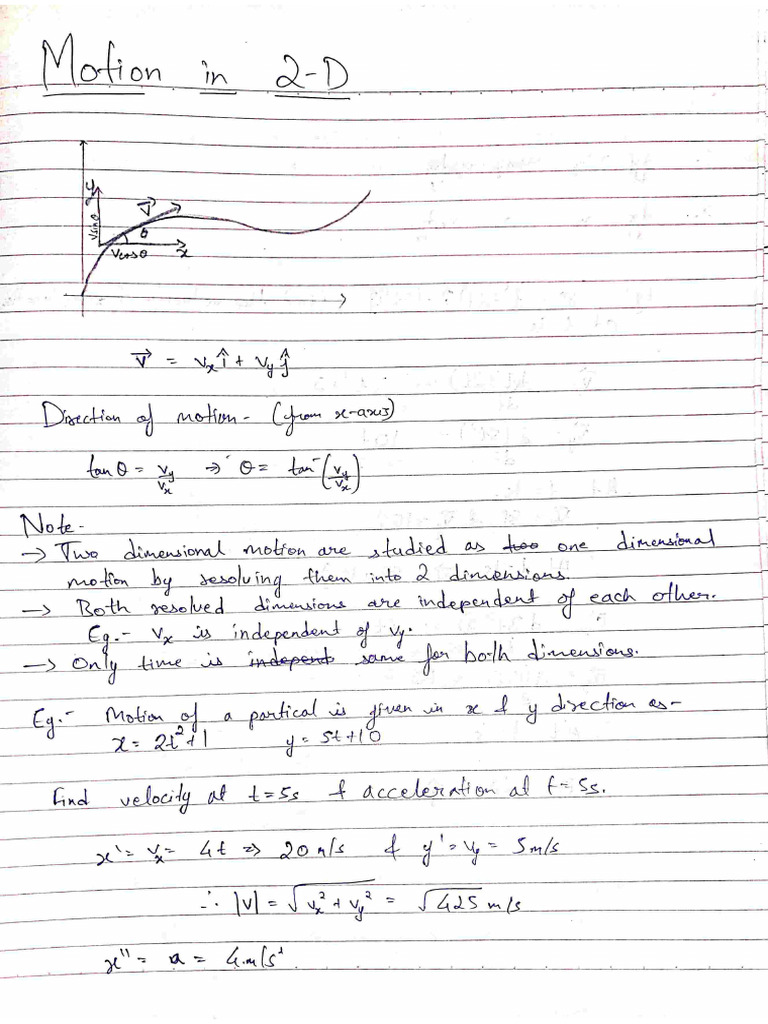 Motion in 2-D
y
v⃗
vsinθ
θ
vcosθ
x
v⃗ = vₓî + vᵧĵ
Direction of motion - (from x-axis)
tanθ = vᵧ/vₓ ⇒ θ = tan⁻(vᵧ/vₓ)
Note -
→ Two dimensional motion are studied as too one dimensional
motion by resolving them into 2 dimensions.
→ Both resolved dimensions are independent of each other.
Eg.- vₓ is independent of vᵧ.
→ Only time is independt same for both dimensions.
Eg.- Motion of a partical is given in x & y direction as-
x = 2t²+1 y = 5t+10
Find velocity at t=5s & acceleration at t=5s.
x' = vₓ = 4t ⇒ 20 m/s & y' = vᵧ = 5m/s
∴ |v| = √(vₓ² + vᵧ²) = √425 m/s
x'' = a = 4m/s²